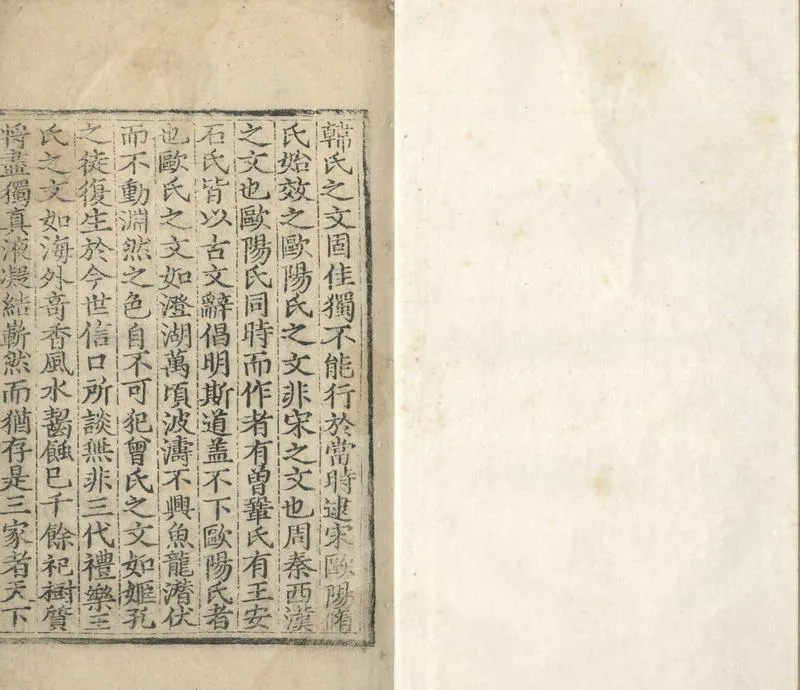 韓氏之文固佳獨不能行於當時逮宋歐陽脩
氏始效之歐陽氏之文非宋之文也周秦西漢
之文也歐陽氏同時而作者有曾鞏氏有王安
石氏皆以古文辭倡明斯道盖不下歐陽氏者
也歐氏之文如澄湖萬頃波濤不興魚龍潛伏
而不動淵然之色自不可犯曾氏之文如姬孔
之徒復生於今世信口所談無非三代禮樂王
氏之文如海外奇香風水齧蝕已千餘祀樹質
將盡獨真液凝結嶄然而猶存是三家者天下